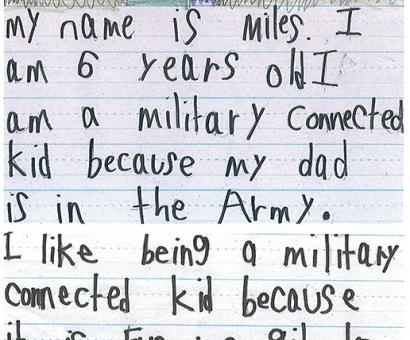 my name is miles. I
am 6 years old I
am a military connected
kid because my dad
is in the Army.
I like being a military
connected kid because
it is